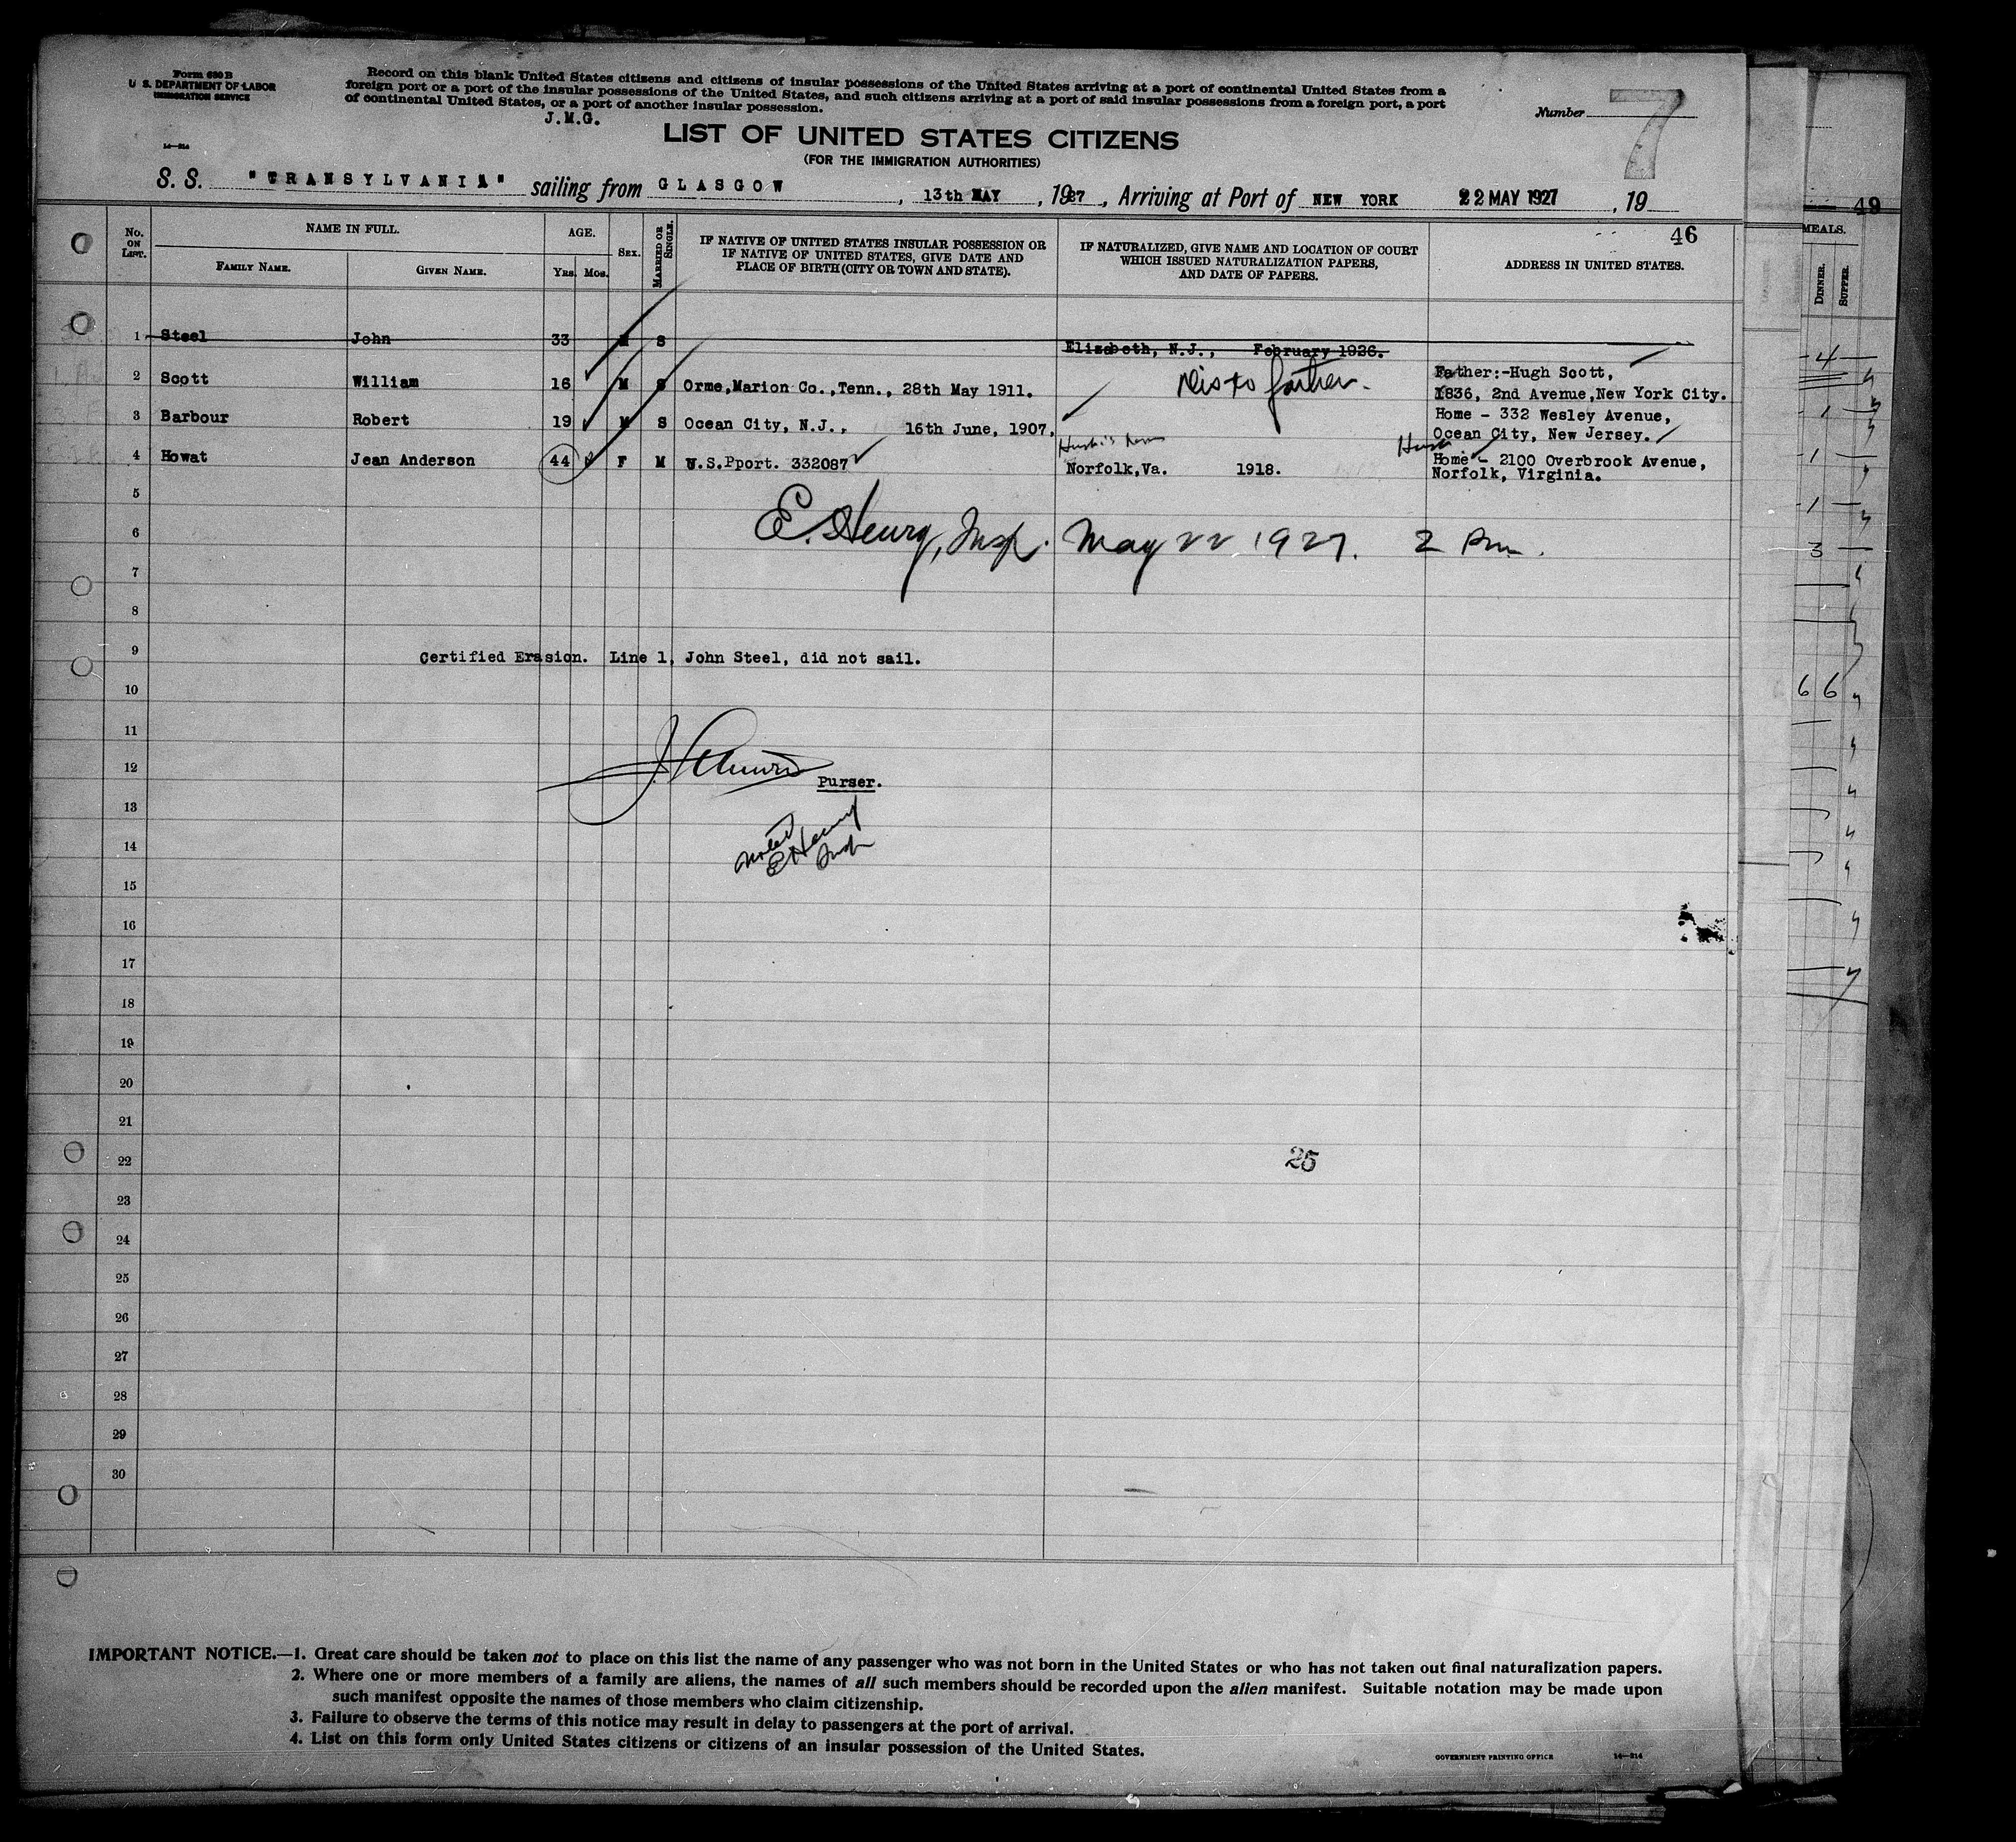 Form 630 B
U. S. DEPARTMENT OF LABOR
IMMIGRATION SERVICE
Record on this blank United States citizens and citizens of insular possessions of the United States arriving at a port of continental United States from a
foreign port or a port of the insular possessions of the United States, and such citizens arriving at a port of said insular possessions from a foreign port, a port
of continental United States, or a port of another insular possession.
J.M.G.
Number 7
14—214
LIST OF UNITED STATES CITIZENS
(FOR THE IMMIGRATION AUTHORITIES)
S. S. "TRANSYLVANIA" sailing from GLASGOW, 13th MAY, 1927, Arriving at Port of NEW YORK 22 MAY 1927, 19
49
46
No. ON LIST.
NAME IN FULL.
FAMILY NAME.
GIVEN NAME.
AGE.
YRS. MOS.
SEX.
MARRIED OR SINGLE.
IF NATIVE OF UNITED STATES INSULAR POSSESSION OR
IF NATIVE OF UNITED STATES, GIVE DATE AND
PLACE OF BIRTH (CITY OR TOWN AND STATE).
IF NATURALIZED, GIVE NAME AND LOCATION OF COURT
WHICH ISSUED NATURALIZATION PAPERS,
AND DATE OF PAPERS.
ADDRESS IN UNITED STATES.
MEALS.
DINNER.
SUPPER.
1 Steel John 33 M S Elizabeth, N.J., February 1926.
2 Scott William 16 M S Orme,Marion Co.,Tenn., 28th May 1911. Dis to father. Father:-Hugh Scott,
1836, 2nd Avenue,New York City.
3 Barbour Robert 19 M S Ocean City, N.J., 16th June, 1907, Home - 332 Wesley Avenue,
Ocean City, New Jersey.
4 Howat Jean Anderson 44 F M U.S.Pport. 332087 Norfolk,Va. 1918. Home - 2100 Overbrook Avenue,
Norfolk, Virginia.
5
6 E. Henry, Insp. May 22 1927. 2 Pm.
7
8
9 Certified Erasion. Line 1, John Steel, did not sail.
10
11
12
Purser.
13
noted
E Henry
Insp
14
15
16
17
18
19
20
21
22 25
23
24
25
26
27
28
29
30
4
1
1
1
3
6 6
IMPORTANT NOTICE.—1. Great care should be taken not to place on this list the name of any passenger who was not born in the United States or who has not taken out final naturalization papers.
2. Where one or more members of a family are aliens, the names of all such members should be recorded upon the alien manifest. Suitable notation may be made upon
such manifest opposite the names of those members who claim citizenship.
3. Failure to observe the terms of this notice may result in delay to passengers at the port of arrival.
4. List on this form only United States citizens or citizens of an insular possession of the United States.
GOVERNMENT PRINTING OFFICE 14—214